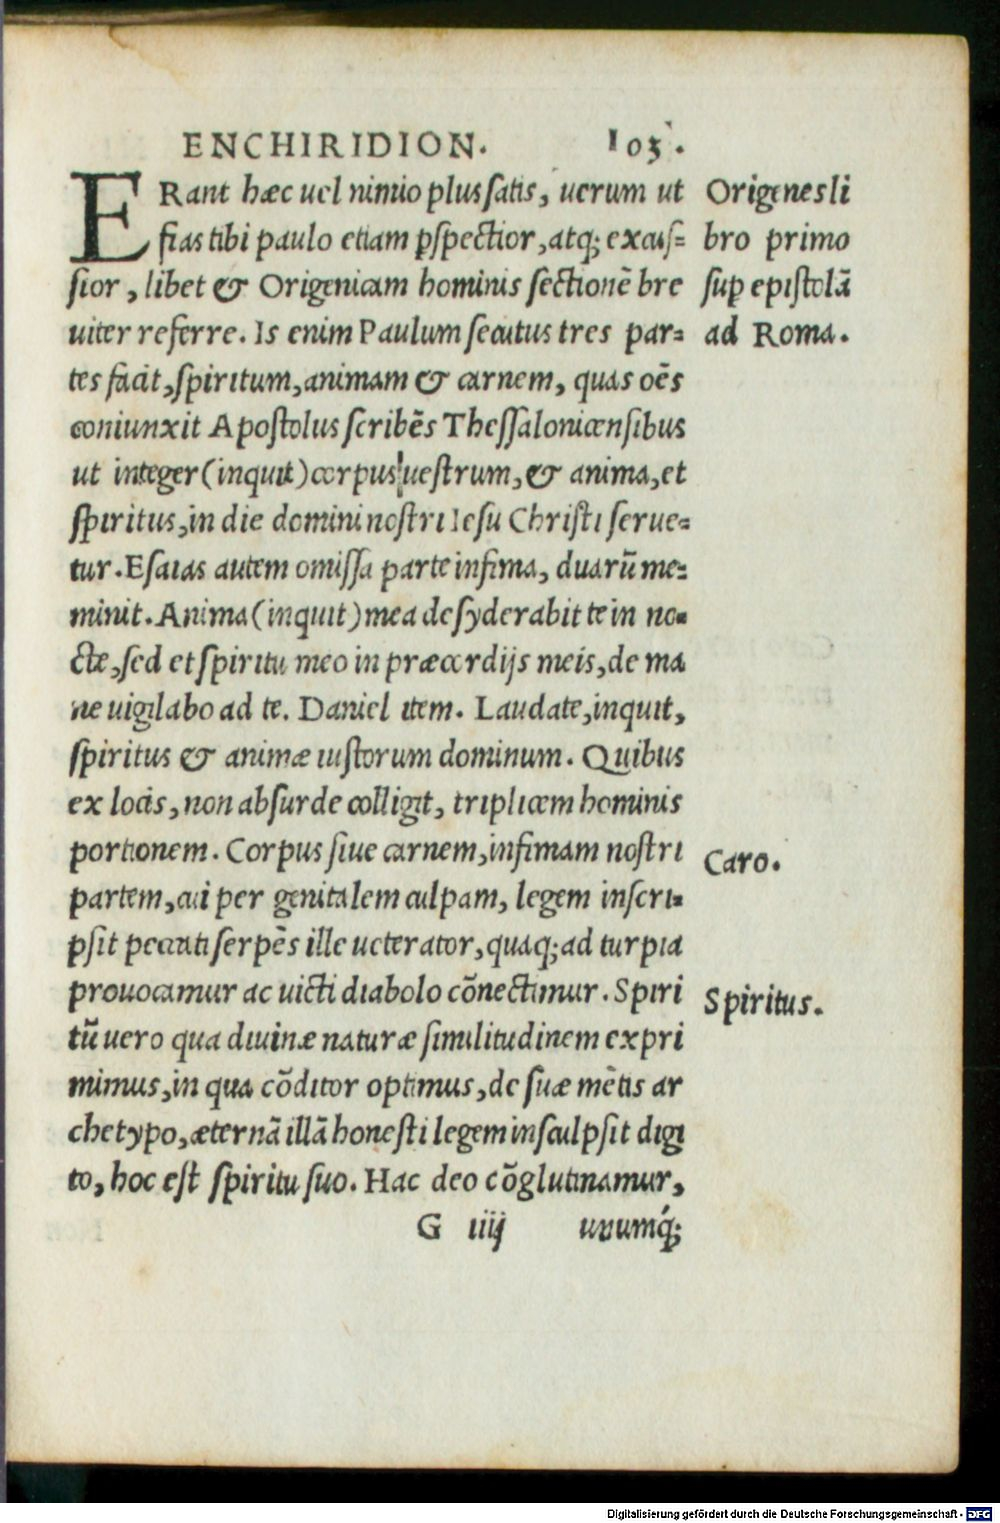 ENCHIRIDION. 103.
ERant hæc uel nimio plus satis, uerum ut
fias tibi paulo etiam ꝑspectior, atq; excus=
sior, libet & Origenicam hominis sectionẽ bre
uiter referre. Is enim Paulum secutus tres par=
tes facit, spiritum, animam & carnem, quas oẽs
coniunxit Apostolus scribẽs Thessalonicensibus
ut integer (inquit) corpus uestrum, & anima, et
spiritus, in die domini nostri Iesu Christi serue=
tur. Esaias autem omissa parte infima, duarũ me=
minit. Anima (inquit) mea desyderabit te in no=
cte, sed et spiritu meo in præcordijs meis, de ma
ne uigilabo ad te. Daniel item. Laudate, inquit,
spiritus & animæ iustorum dominum. Quibus
ex locis, non absurde colligit, triplicem hominis
portionem. Corpus siue carnem, infimam nostri
partem, cui per genitalem culpam, legem inscri=
psit peccati serpẽs ille ueterator, quaq; ad turpia
prouocamur ac uicti diabolo cõnectimur. Spiri
tũ uero qua diuinæ naturæ similitudinem expri
mimus, in qua cõditor optimus, de suæ mẽtis ar
chetypo, æternã illã honesti legem insculpsit digi
to, hoc est spiritu suo. Hac deo cõglutinamur,
G iiij unumq́;
Origenes li
bro primo
suꝑ epistolã
ad Roma.
Caro.
Spiritus.
Digitalisierung gefördert durch die Deutsche Forschungsgemeinschaft - DFG